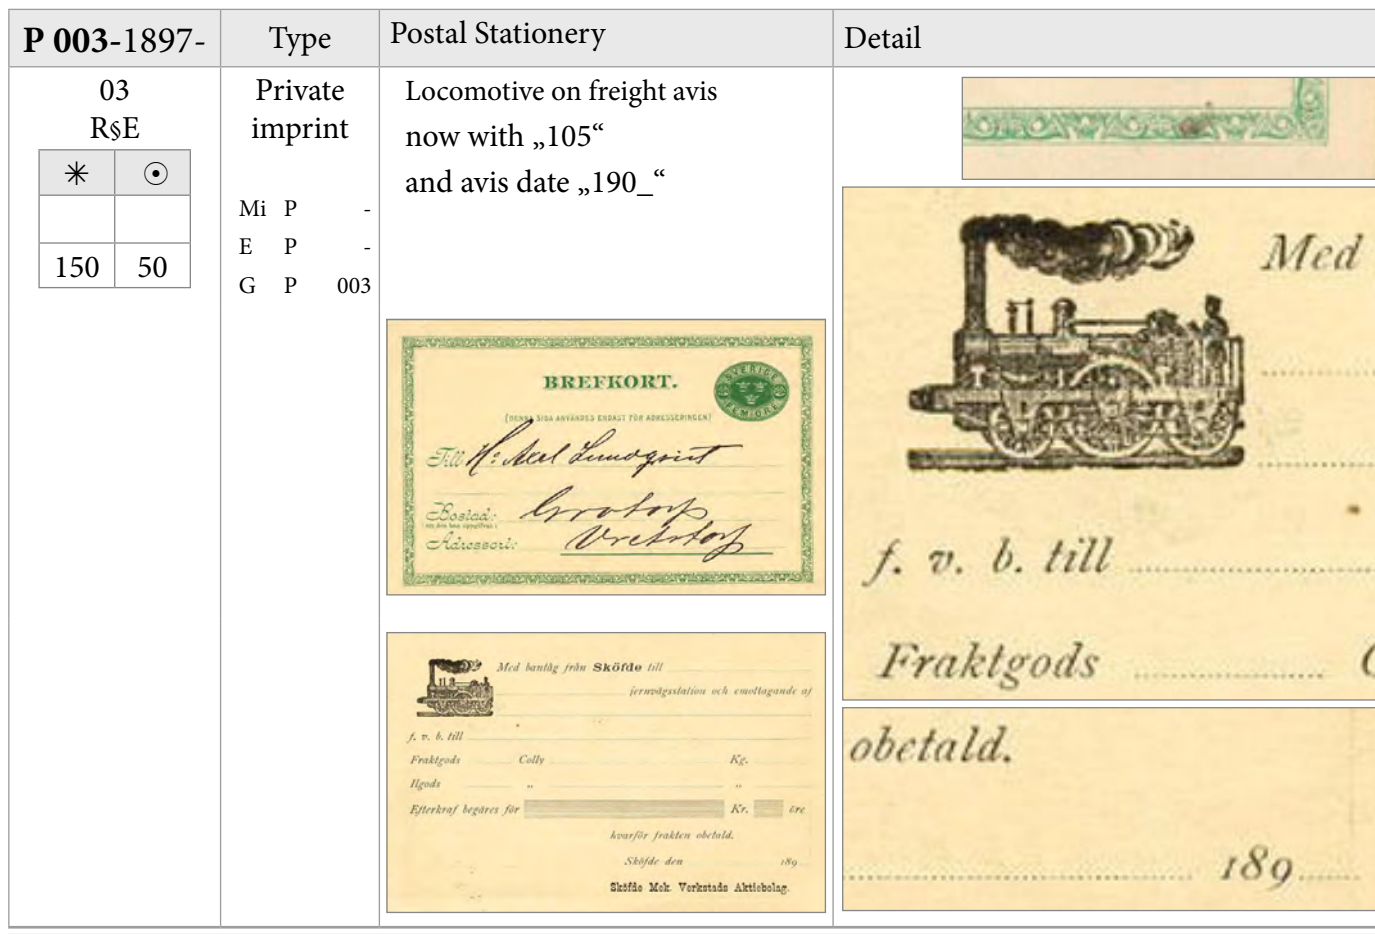 P 003-1897-
Type
Postal Stationery
Detail
03
R§E
✳ ⊙
150 50
Private
imprint
Mi P -
E P -
G P 003
Locomotive on freight avis
now with „105“
and avis date „190_“
BREFKORT.
(DENNA SIDA ANVÄNDES ENDAST FÖR ADRESSERINGEN)
SVERIGE
FEM ÖRE
Till Hr Axel Lundqvist
Bostad:
Grotorp
Adressort: Vretstorp
Med bantåg från Sköfde till
jernvägsstation och emottagande af
f. v. b. till
Fraktgods Colly Kg.
Ilgods „ „
Efterkraf begäres för Kr. öre
hvarför frakten obetald.
Sköfde den 189
Sköfde Mek. Verkstads Aktiebolag.
Med
f. v. b. till
Fraktgods C
obetald.
189